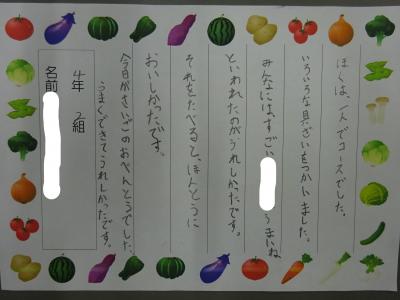 ぼくは、一人でコースでした。
いろいろな具ざいをつかいました。
みんなにはすごい うまいね
といわれたのがうれしかったです。
それをたべると、ほんとうに
おいしかったです。
今日がさいごのおべんとうでした。
うまくできてうれしかったです。
4年 2組
名前